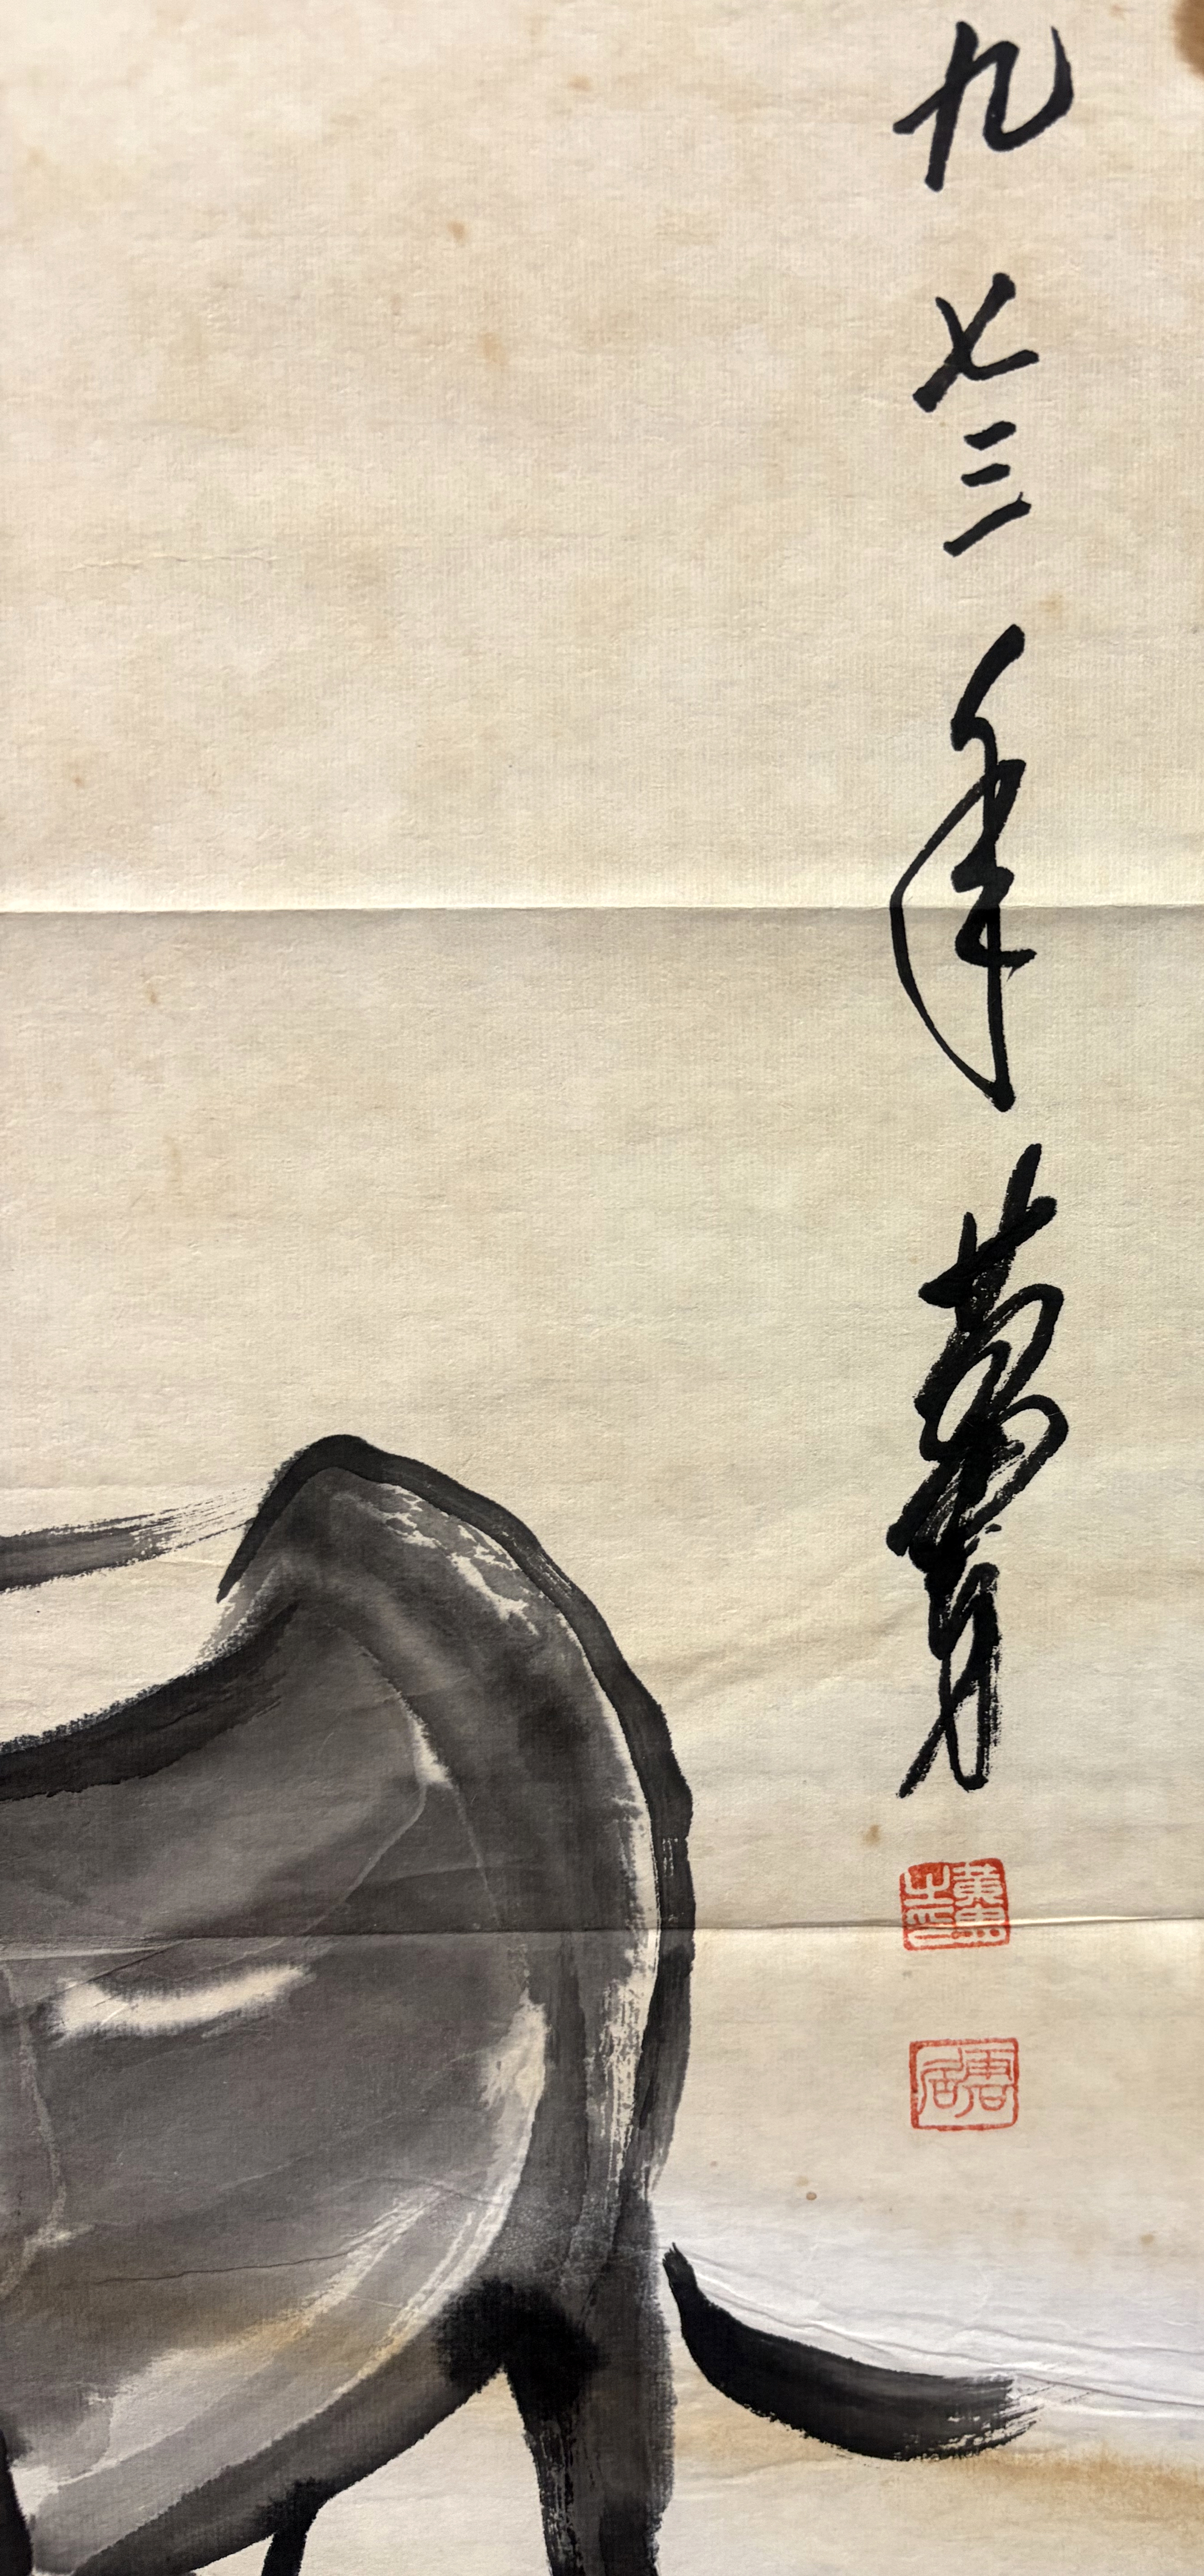 九七三年黄胄
黄胄之印